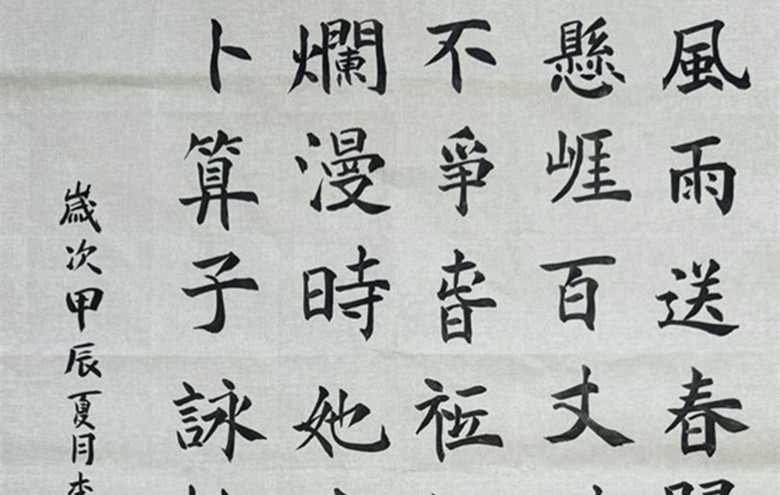 風雨送春
懸崕百丈
不爭春祗
爛漫時她
卜算子詠
歲次甲辰夏月